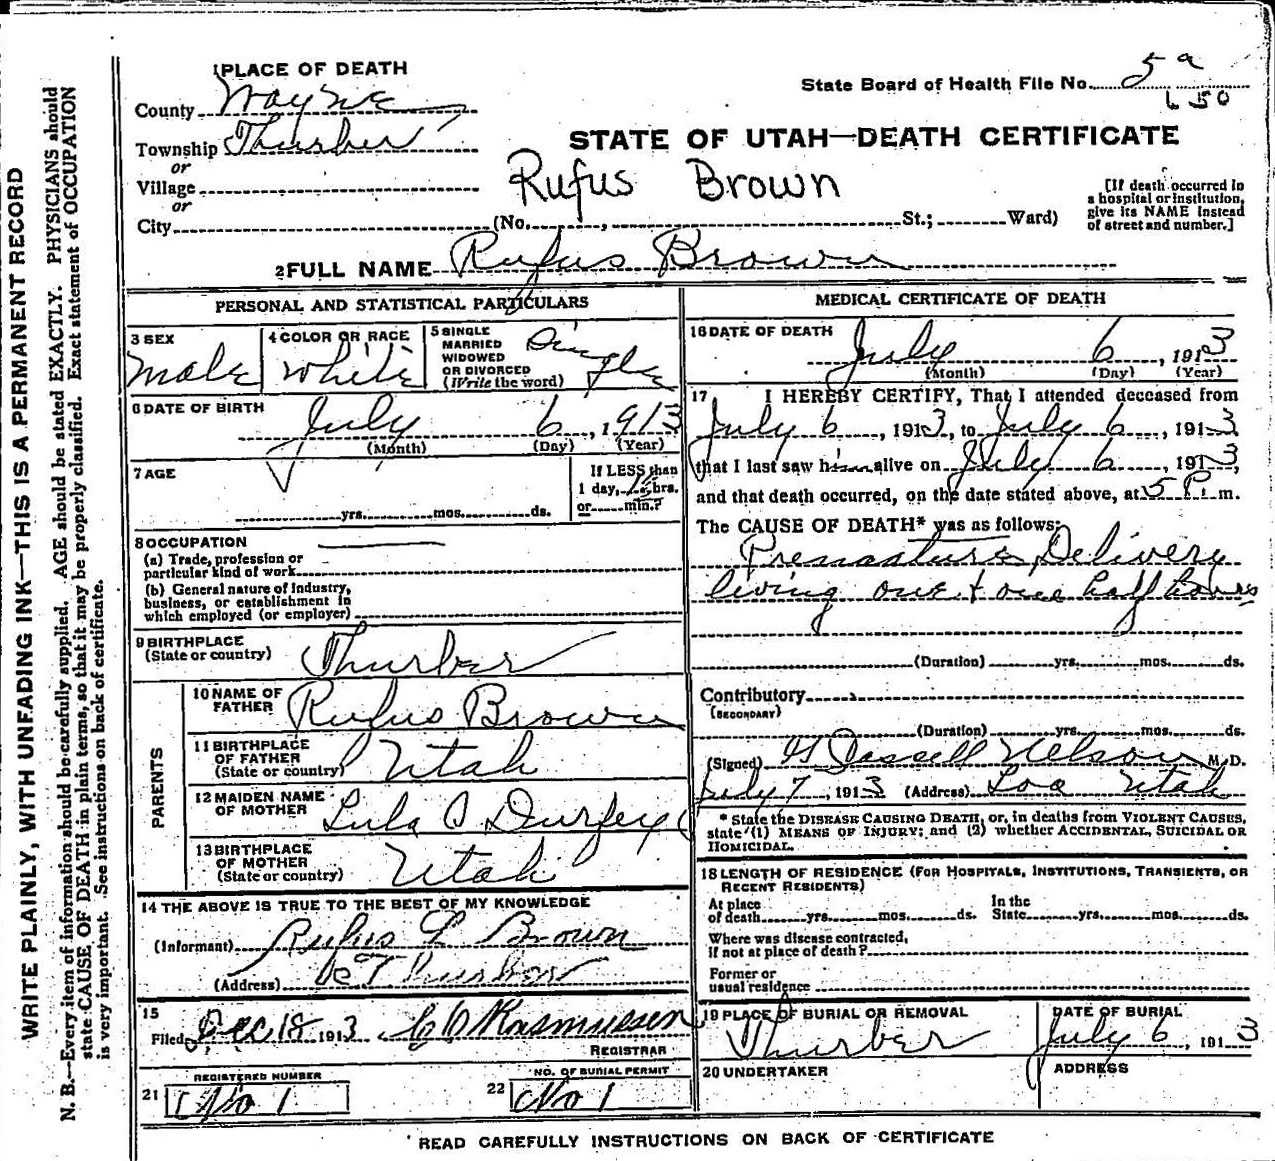 WRITE PLAINLY, WITH UNFADING INK—THIS IS A PERMANENT RECORD
N. B.—Every item of information should be carefully supplied. AGE should be stated EXACTLY. PHYSICIANS should
state CAUSE OF DEATH in plain terms, so that it may be properly classified. Exact statement of OCCUPATION
is very important. See instructions on back of certificate.
1 PLACE OF DEATH
State Board of Health File No. 5a
650
County Wayne
Township Thurber
or
Village
or
City
STATE OF UTAH—DEATH CERTIFICATE
Rufus Brown
(No. , St.; Ward)
[If death occurred in
a hospital or institution,
give its NAME instead
of street and number.]
2 FULL NAME Rufus Brown
PERSONAL AND STATISTICAL PARTICULARS
3 SEX
Male
4 COLOR OR RACE
White
5 SINGLE
MARRIED
WIDOWED
OR DIVORCED
(Write the word)
Single
6 DATE OF BIRTH
July 6, 1913
(Month) (Day) (Year)
7 AGE
yrs. mos. ds.
If LESS than
1 day, 1½ hrs.
or min.?
8 OCCUPATION
(a) Trade, profession or
particular kind of work
(b) General nature of industry,
business, or establishment in
which employed (or employer)
9 BIRTHPLACE
(State or country)
Thurber
PARENTS
10 NAME OF
FATHER
Rufus Brown
11 BIRTHPLACE
OF FATHER
(State or country)
Utah
12 MAIDEN NAME
OF MOTHER
Lula A Durfey
13 BIRTHPLACE
OF MOTHER
(State or country)
Utah
14 THE ABOVE IS TRUE TO THE BEST OF MY KNOWLEDGE
(Informant) Rufus L Brown
(Address) Thurber
15
Filed Dec 18 1913 C C Rasmussen
REGISTRAR
21
REGISTERED NUMBER
No 1
22
NO. OF BURIAL PERMIT
No 1
MEDICAL CERTIFICATE OF DEATH
16 DATE OF DEATH
July 6, 1913
(Month) (Day) (Year)
17 I HEREBY CERTIFY, That I attended deceased from
July 6, 1913, to July 6, 1913
that I last saw him alive on July 6, 1913,
and that death occurred, on the date stated above, at 5 P. m.
The CAUSE OF DEATH* was as follows:
Premature Delivery
living one & one half hours
(Duration) yrs. mos. ds.
Contributory
(SECONDARY)
(Duration) yrs. mos. ds.
(Signed) Nelson M. D.
July 7, 1913 (Address) Loa Utah
* State the DISEASE CAUSING DEATH, or, in deaths from VIOLENT CAUSES,
state (1) MEANS OF INJURY; and (2) whether ACCIDENTAL, SUICIDAL OR
HOMICIDAL.
18 LENGTH OF RESIDENCE (FOR HOSPITALS, INSTITUTIONS, TRANSIENTS, OR
RECENT RESIDENTS)
At place
of death yrs. mos. ds.
In the
State yrs. mos. ds.
Where was disease contracted,
if not at place of death?
Former or
usual residence
19 PLACE OF BURIAL OR REMOVAL
Thurber
DATE OF BURIAL
July 6, 1913
20 UNDERTAKER
ADDRESS
READ CAREFULLY INSTRUCTIONS ON BACK OF CERTIFICATE